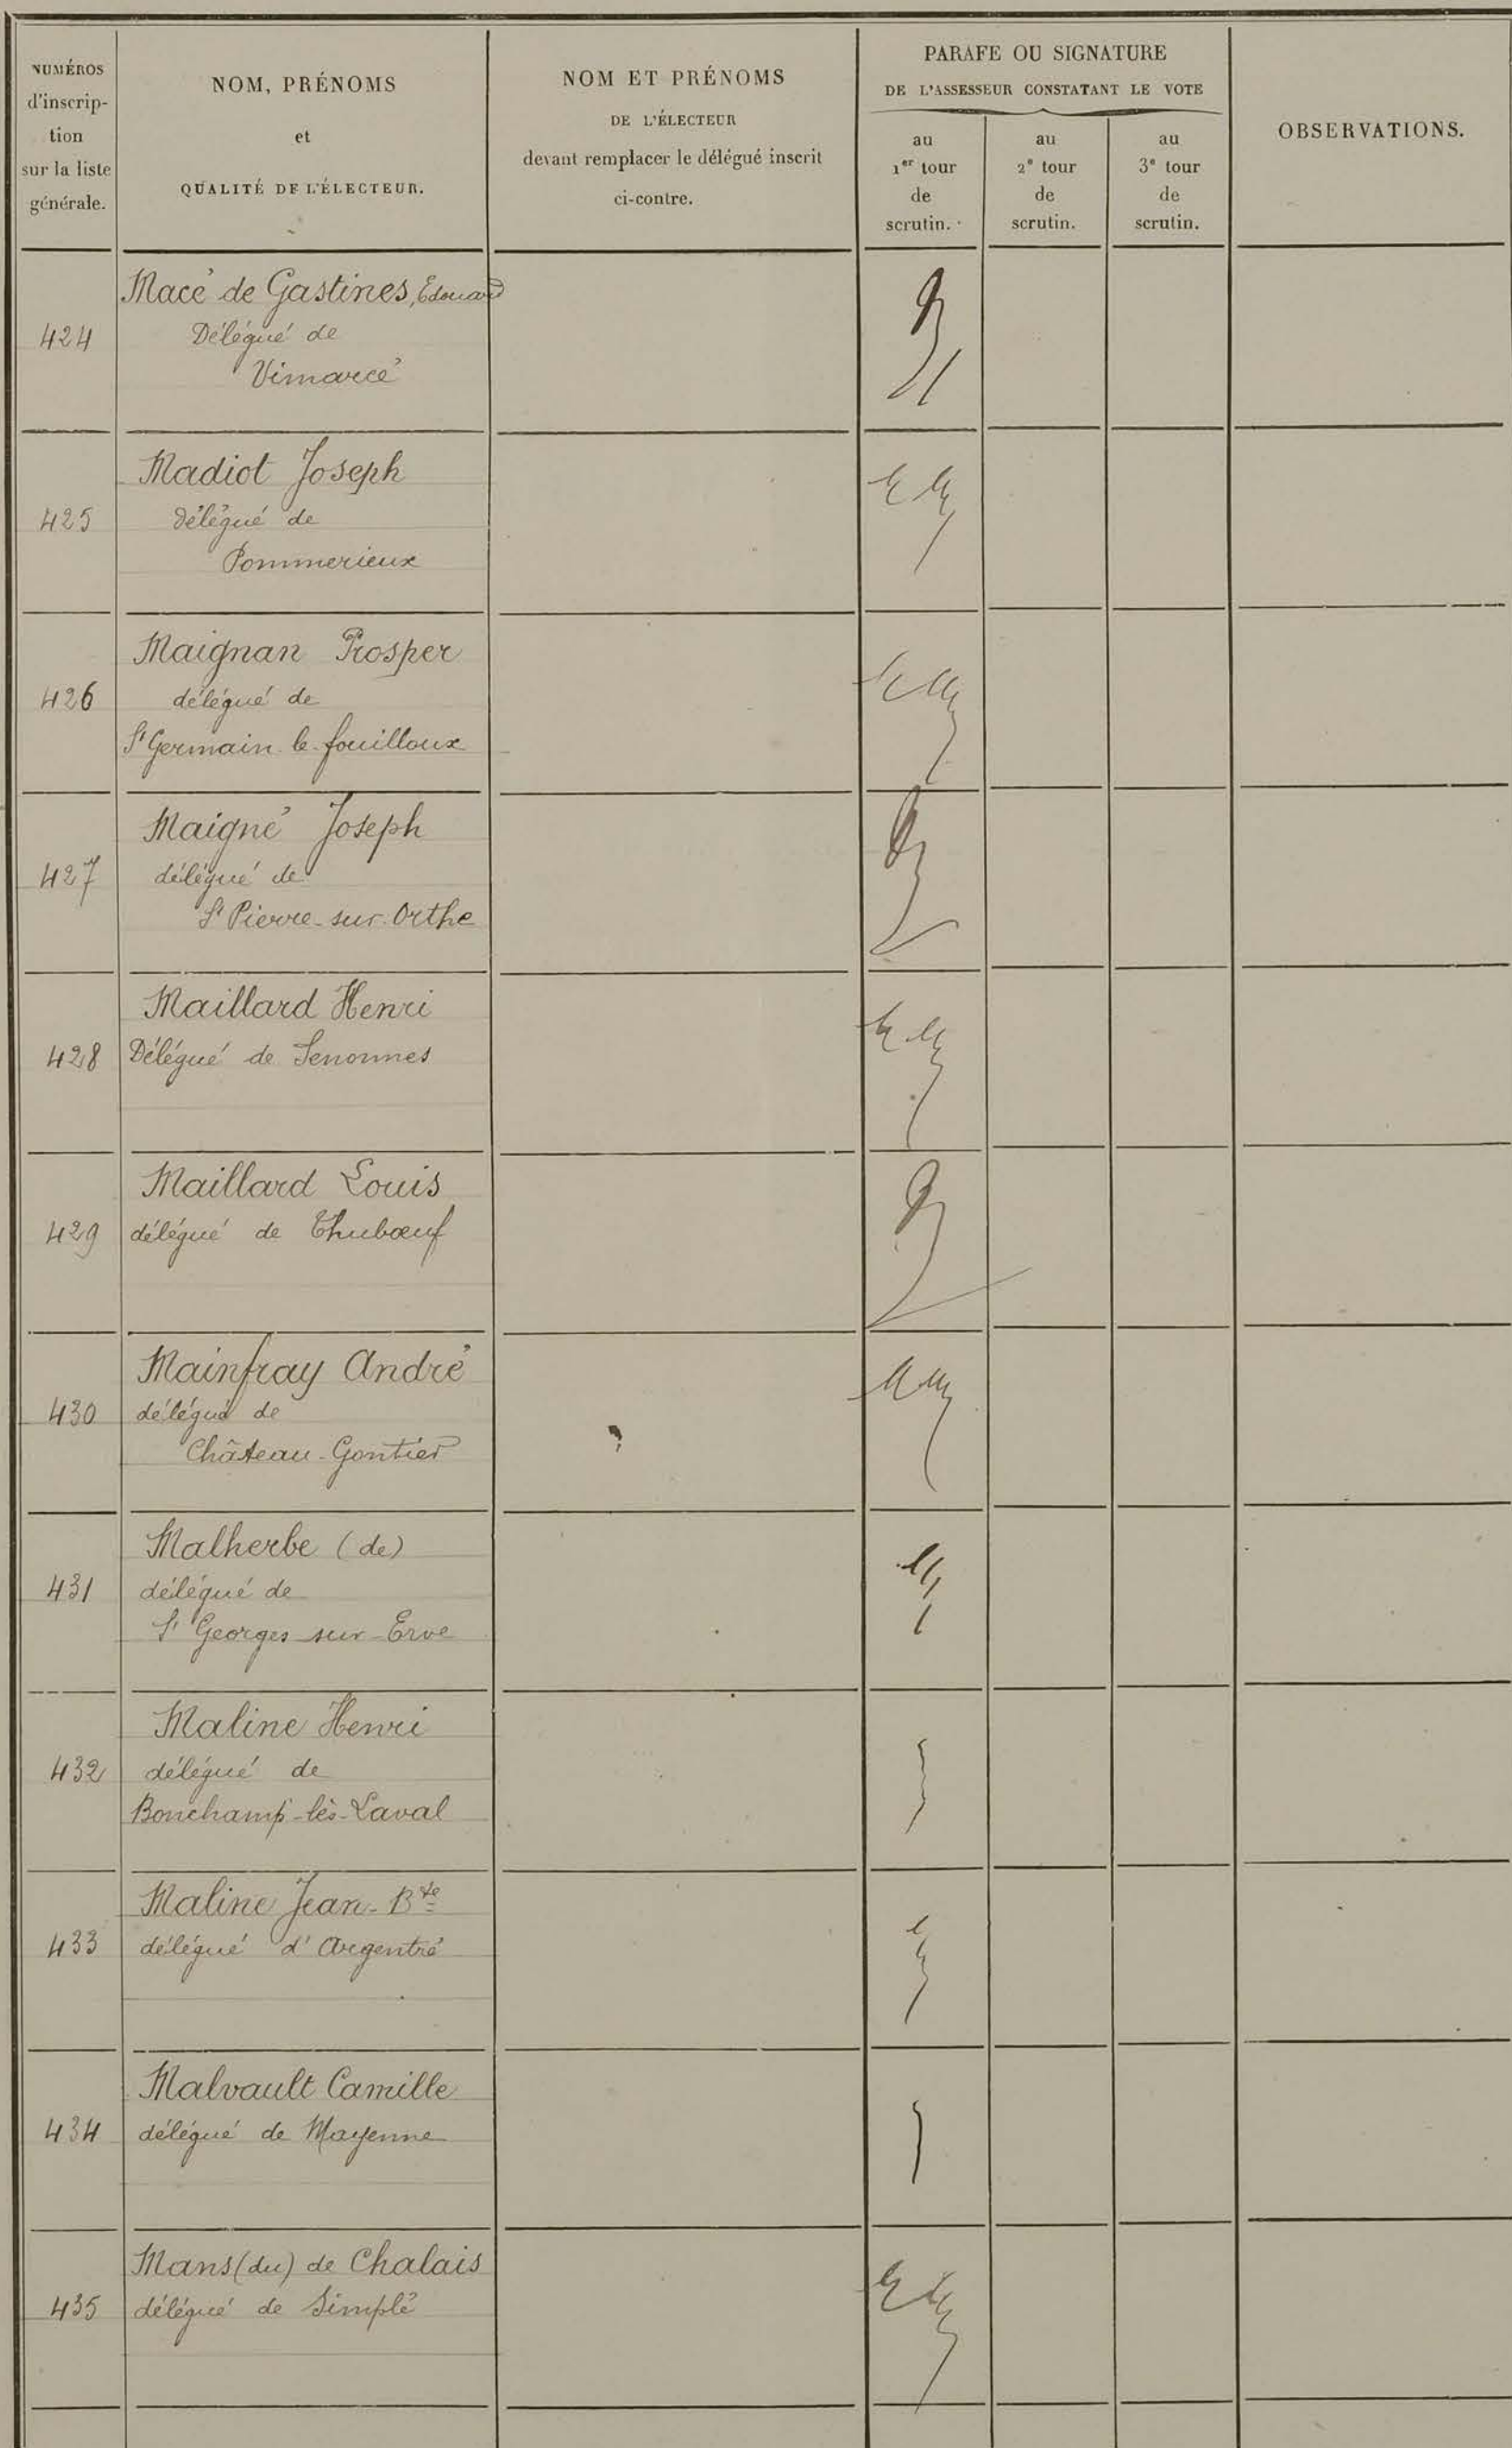 NUMÉROS
d'inscrip-
tion
sur la liste
générale.
NOM, PRÉNOMS
et
QUALITÉ DE L'ÉLECTEUR.
NOM ET PRÉNOMS
DE L'ÉLECTEUR
devant remplacer le délégué inscrit
ci-contre.
PARAFE OU SIGNATURE
DE L'ASSESSEUR CONSTATANT LE VOTE
au
1er tour
de
scrutin.
au
2e tour
de
scrutin.
au
3e tour
de
scrutin.
OBSERVATIONS.
Macé de Gastines, Edouard
424 Délégué de
Vimarcé
Madiot Joseph
425 délégué de
Pommerieux
Maignan Prosper
426 délégué de
St Germain le fouilloux
Maigné Joseph
427 délégué de
St Pierre-sur-Orthe
Maillard Henri
428 Délégué de Senonnes
Maillard Louis
429 délégué de Thubœuf
Mainfray André
430 délégué de
Château-Gontier
Malherbe (de)
431 délégué de
St Georges-sur-Erve
Maline Henri
432 délégué de
Bonchamp-lès-Laval
Maline Jean-Bte
433 délégué d'Argentré
Malvault Camille
434 délégué de Mayenne
Mans (du) de Chalais
435 délégué de Simplé